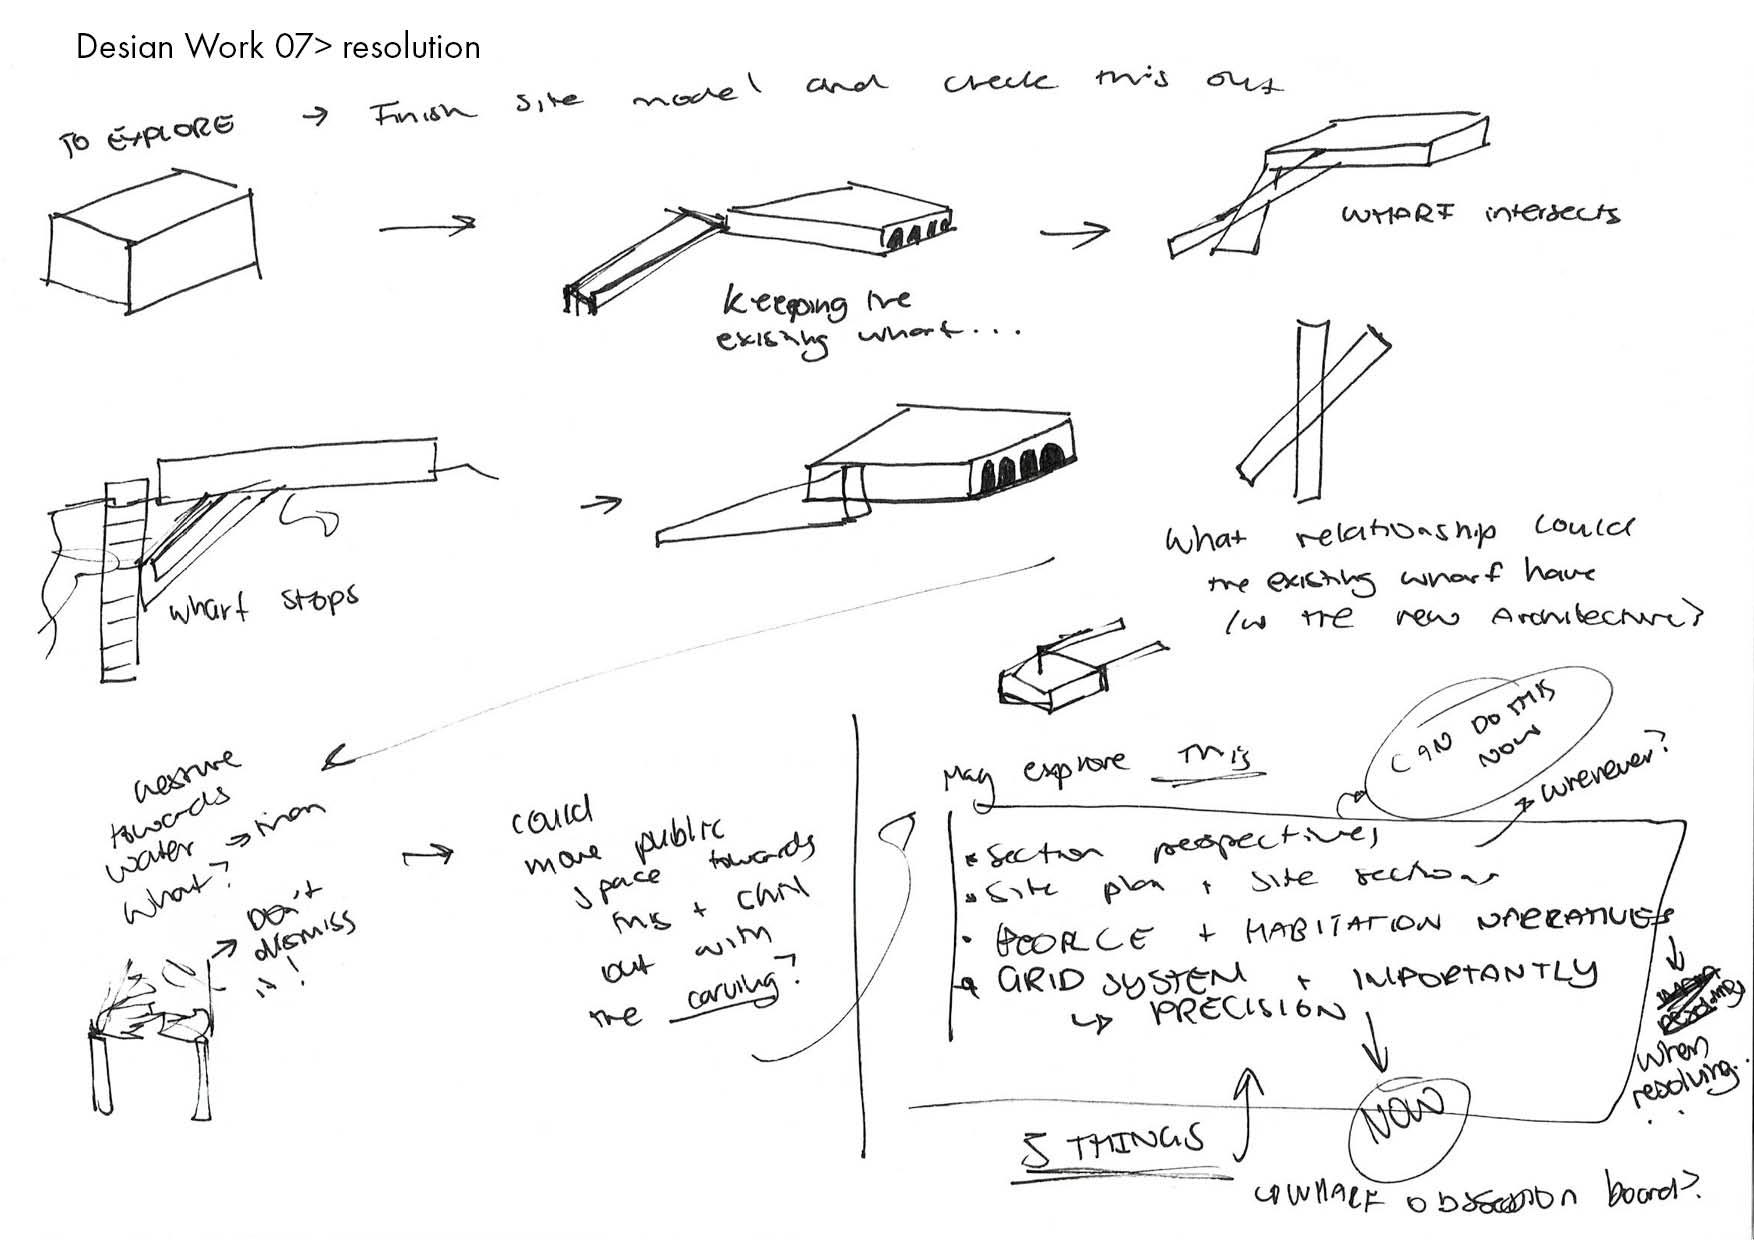 Desian Work 07> resolution
TO EXPLORE → Finish site model and check this out
Keeping the
existing wharf...
WHARF intersects
wharf stops
What relationship could
the existing wharf have
/w the new Architecture?
towards
water
what?
Don't
dismiss
could
more public
space towards
this + chill
out with
the carving?
May explore this
CAN DO THIS
NOW
→ whenever?
• Section perspectives
• Site plan + site sections
• PEOPLE + HABITATION NARRATIVES
• GRID SYSTEM + IMPORTANTLY
↳ PRECISION
when
resolving...
NOW
5 THINGS
↳ WHARF obsession board?